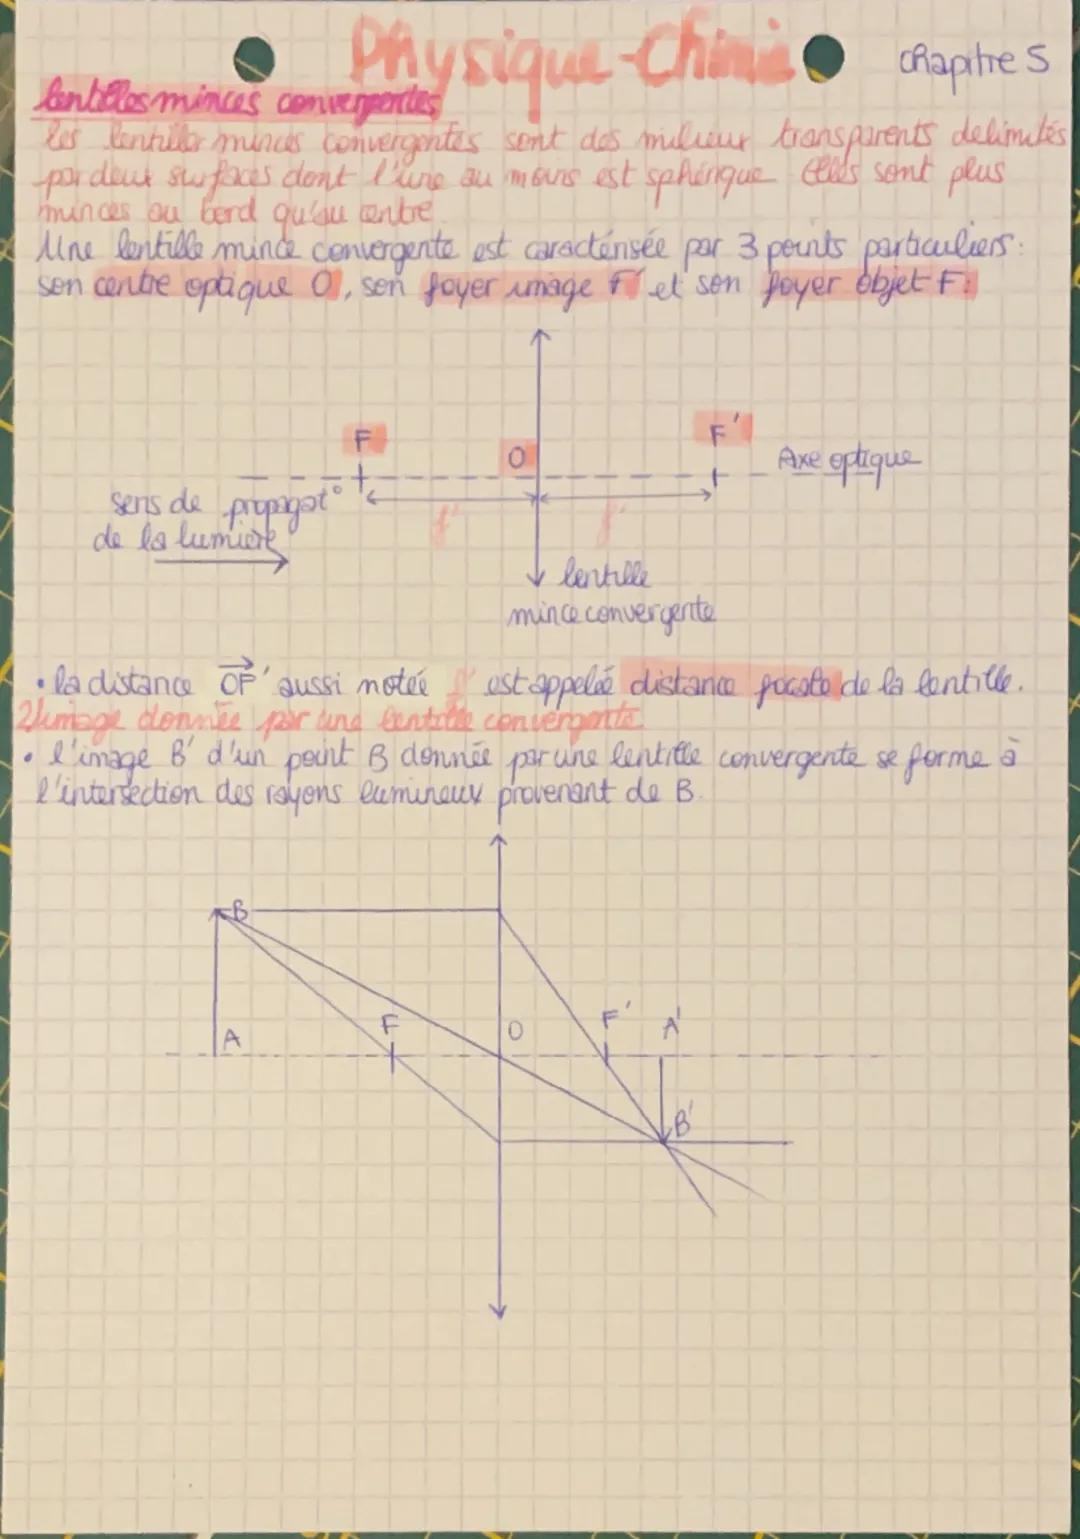 Physique-Chimie
chapitre 5
lentilles minces convergentes
les lentilles minces convergentes sont des milieux transparents délimités
par deux surfaces dont l'une au moins est sphérique Elles sont plus
minces au bord qu'au centre
Une lentille mince convergente est caractérisée par 3 points particuliers:
son centre optique O, son foyer image F' et son foyer objet F:
F
O
F'
Axe optique
sens de propagat°
de la lumière
f'
f'
lentille
mince convergente
• la distance OF' aussi notée f' est appelée distance focale de la lentille.
2) image donnée par une lentille convergente
• l'image B' d'un point B donnée par une lentille convergente se forme à
l'intersection des rayons lumineux provenant de B.
B
A
F
O
F'
A'
B'